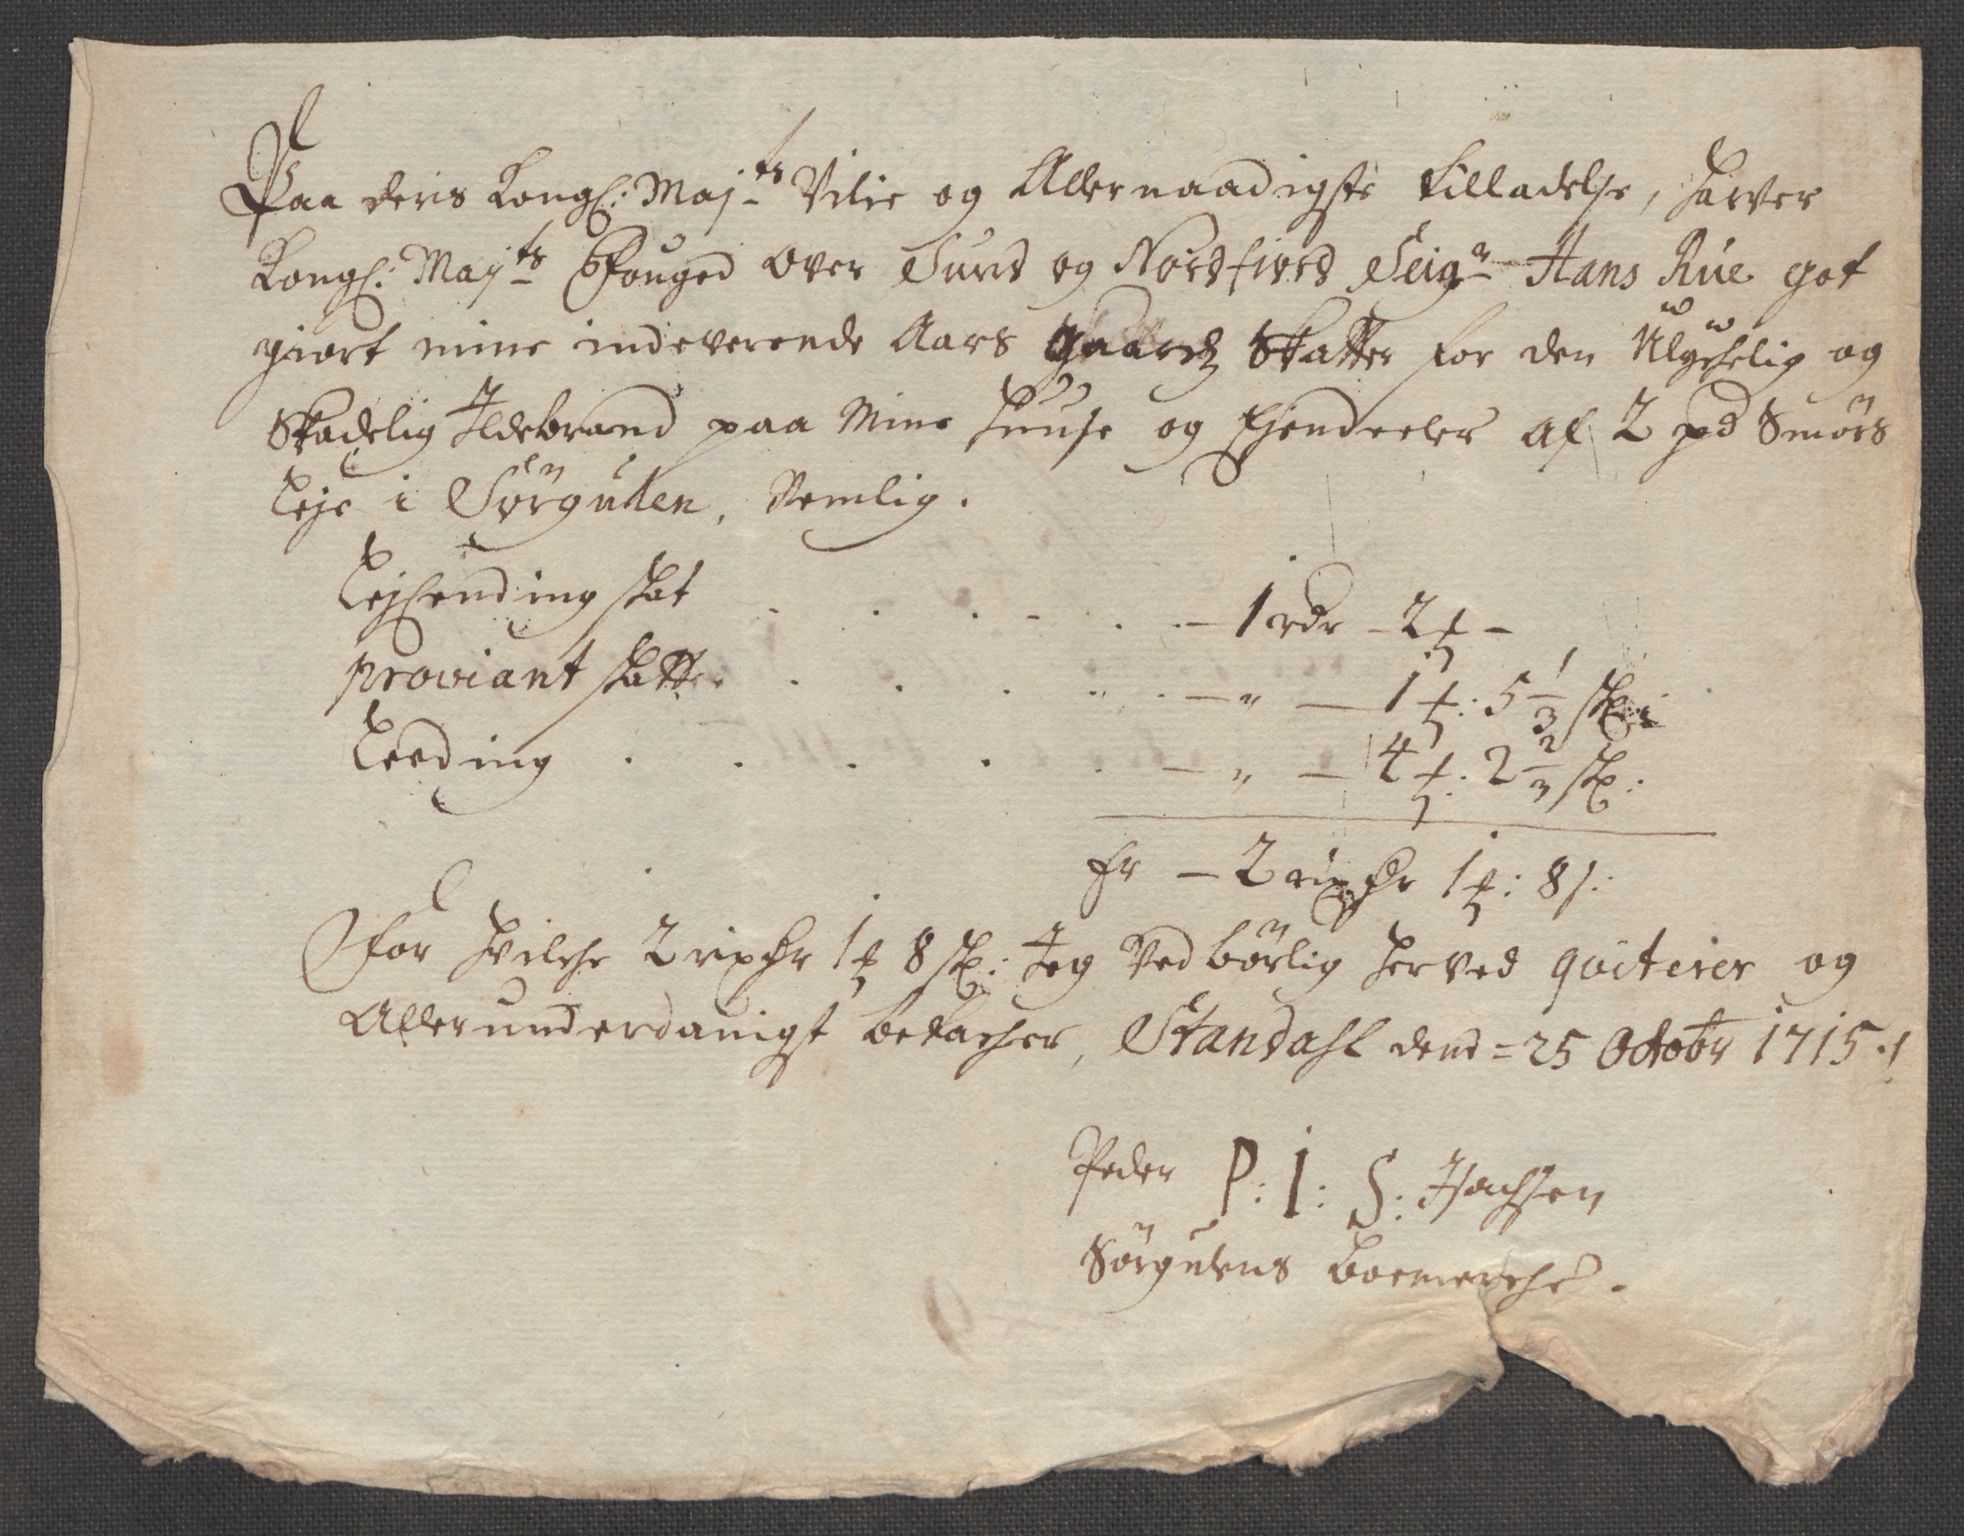 Paa deris Kongl: Maj.ts Vilie og Allernaadigste tilladelse, haver
Kongl: Maj.ts Fouged over Sund og Nordfiord Seig.r Hans Rüe got
giort mine indeverende Aars gaards Skatter for den Ulychelig og
Skadelig Ildebrand paa mine huuse og Ejendeeler af 2 pd Smörs
leje i Sörgulen, Nemlig.
Lejlending skat . . . . . . — 1 rdr — 2 ꝉ —
proviant skatt . . . . . — " — 1 ꝉ: 5 1/3 sk:
Leeding . . . . . — " — 4 ꝉ: 2 2/3 sk:
Er — 2 rixdr 1 ꝉ: 8 s:
For hvilche 2 rixdr 1 ꝉ 8 sk: Jeg Ved börlig herved qviterer og
Allerunderdanigst betacher, Standahl dend = 25 Octobr 1715 ./
Peder P: I: S: Isachsen
Sörgulens boemerche.